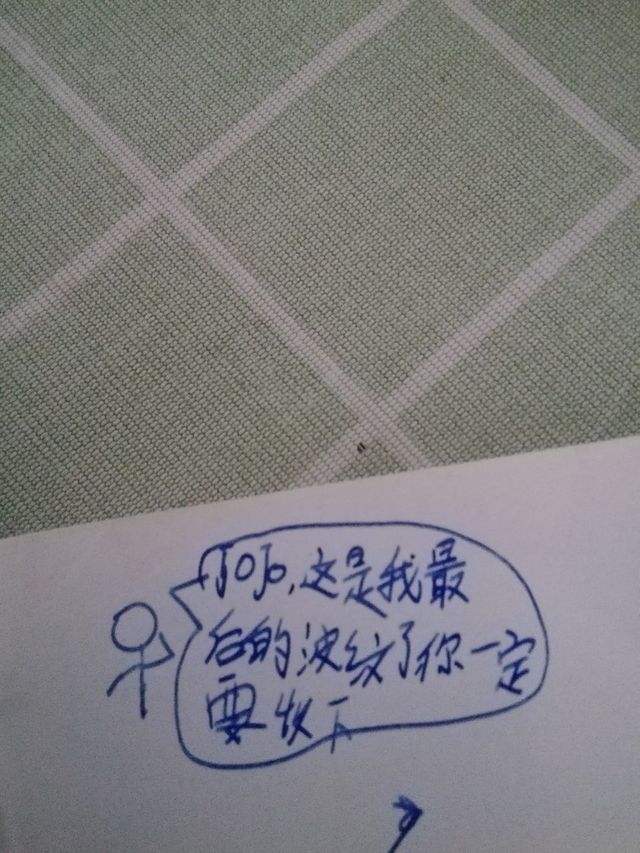 JOJO,这是我最
后的波纹了你一定
要收下